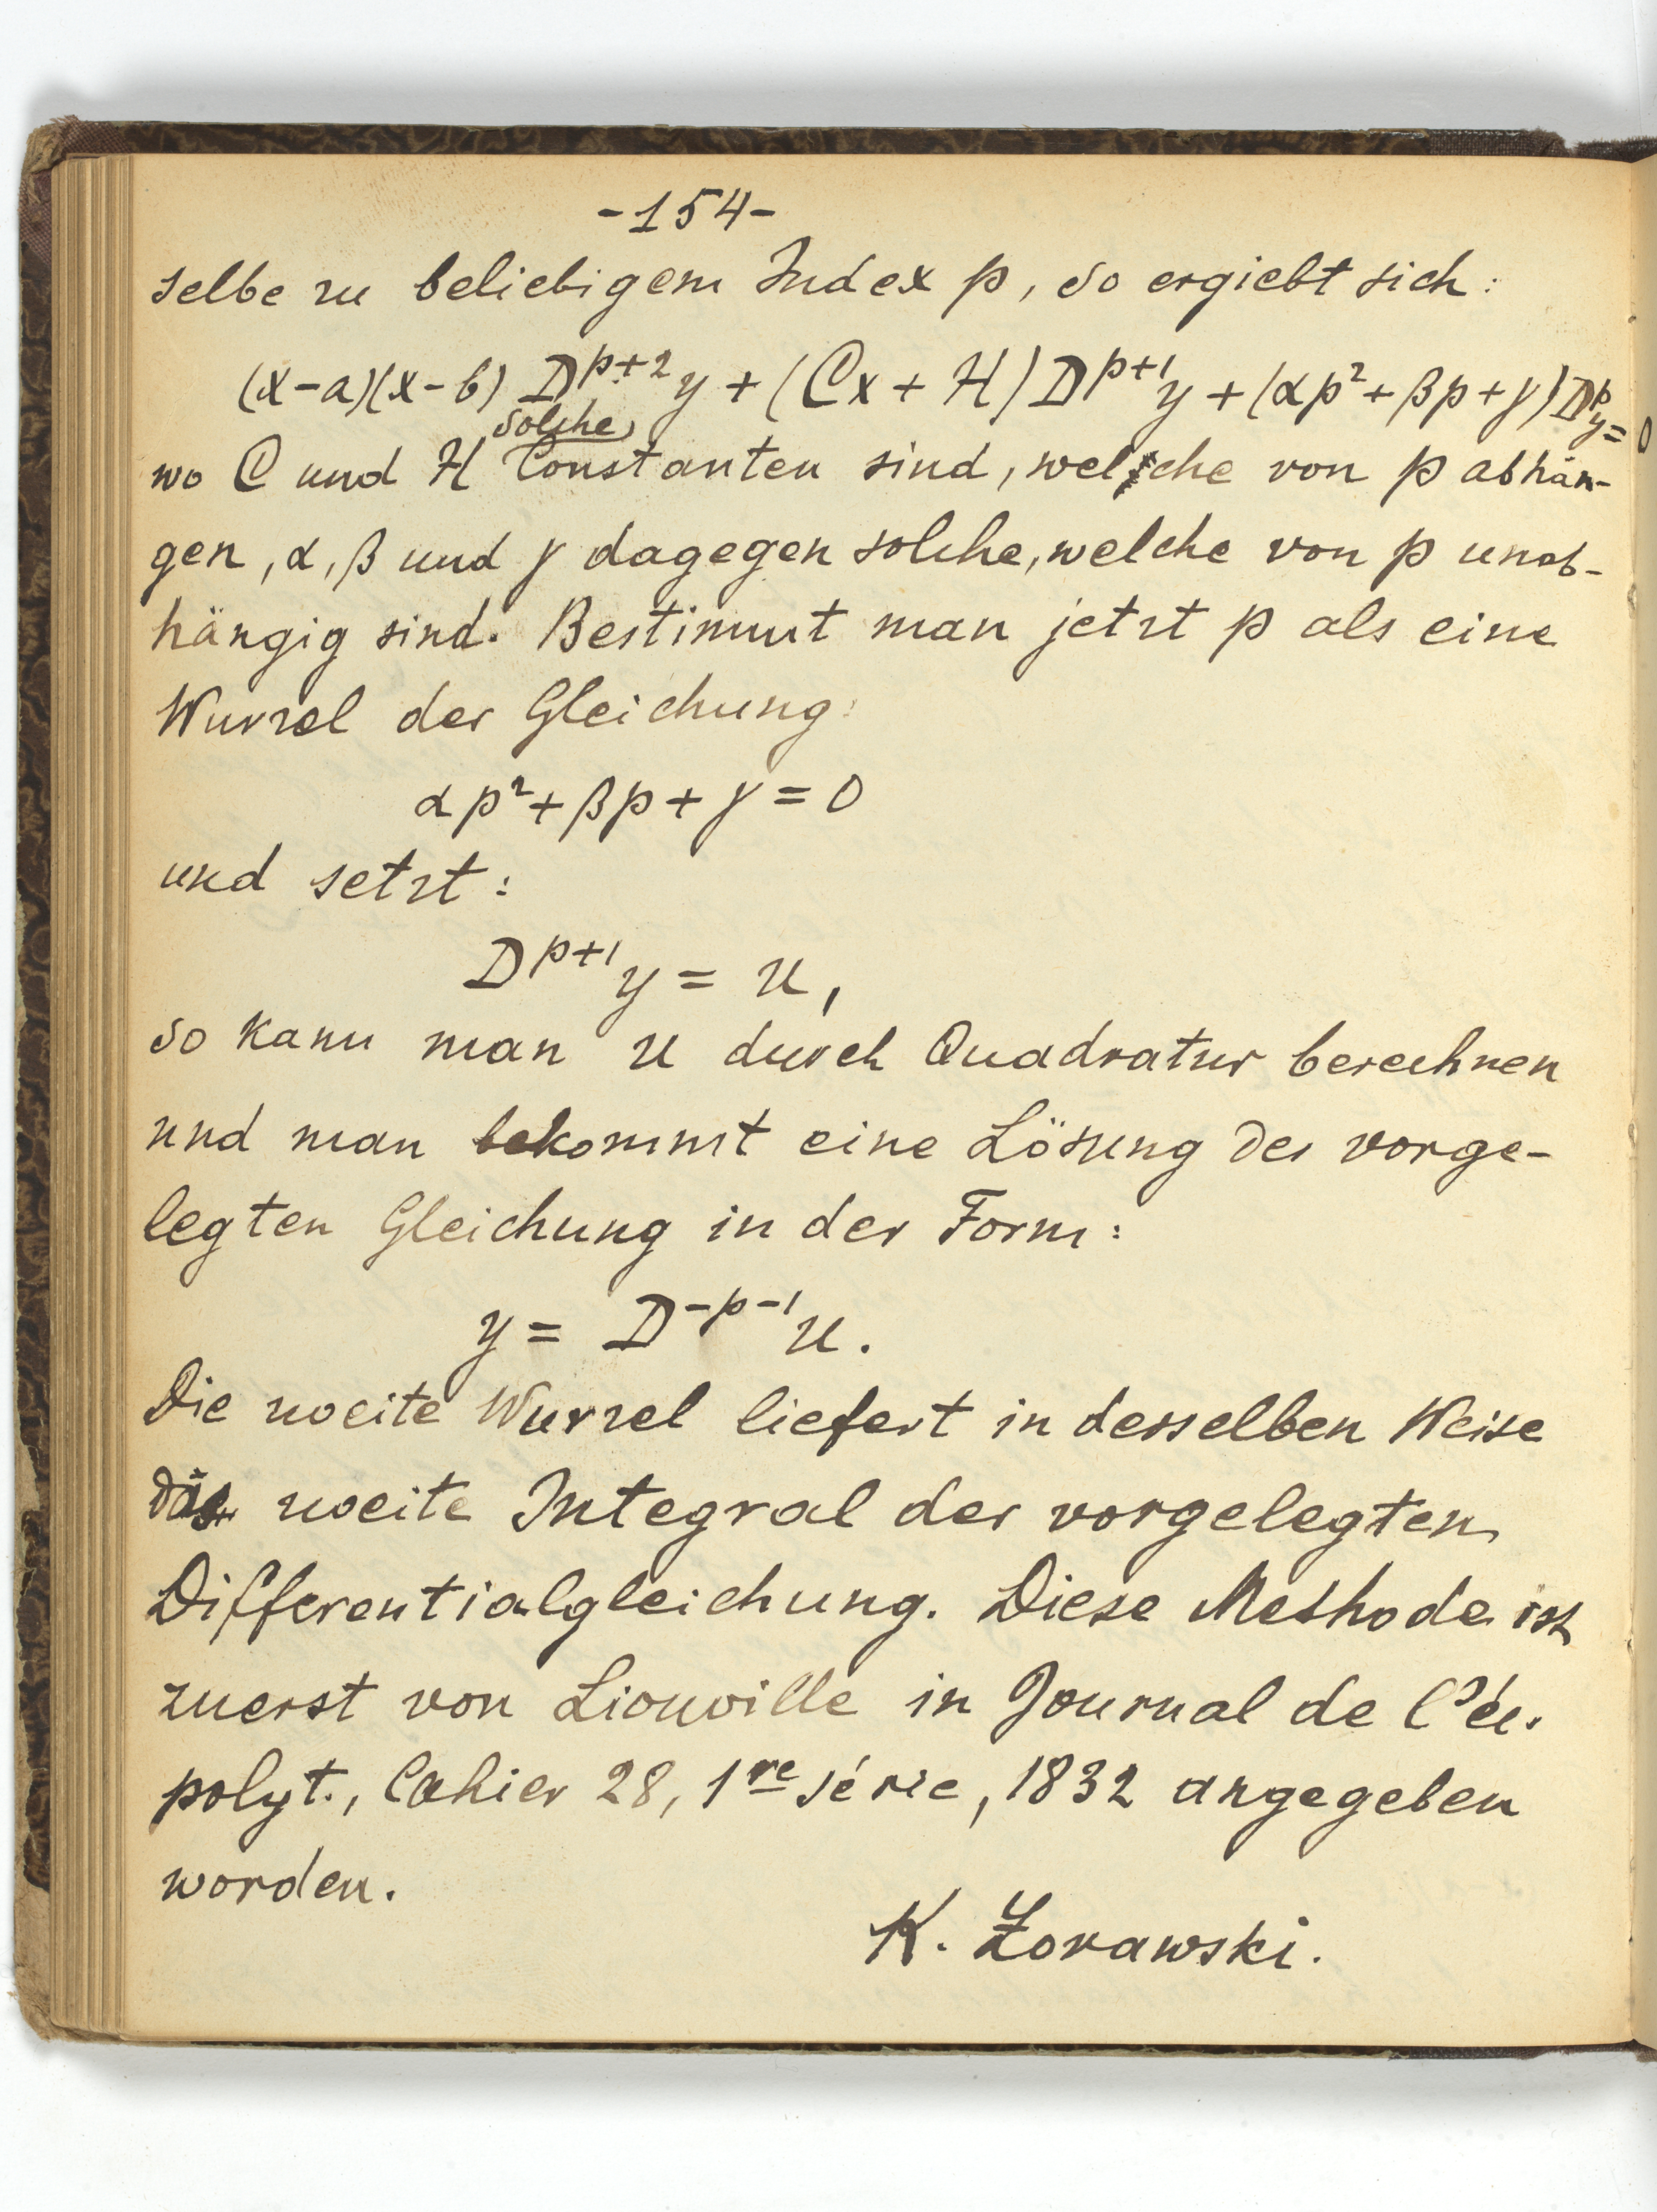 -154-
selbe zu beliebigem Index p, so ergiebt sich:
(x-a)(x-b) D^{p+2}y + (Cx + H) D^{p+1}y + (αp² + βp + γ) D^p y = 0
solche
wo C und H Constanten sind, welche von p abhän-
gen, α, β und γ dagegen solche, welche von p unab-
hängig sind. Bestimmt man jetzt p als eine
Wurzel der Gleichung:
αp² + βp + γ = 0
und setzt:
D^{p+1}y = u,
so kann man u durch Quadratur berechnen
und man bekommt eine Lösung der vorge-
legten Gleichung in der Form:
y = D^{-p-1}u.
Die zweite Wurzel liefert in derselben Weise
das zweite Integral der vorgelegten
Differentialgleichung. Diese Methode ist
zuerst von Liouville in Journal de l'éc.
polyt., Cahier 28, 1re série, 1832 angegeben
worden.
K. Żorawski.